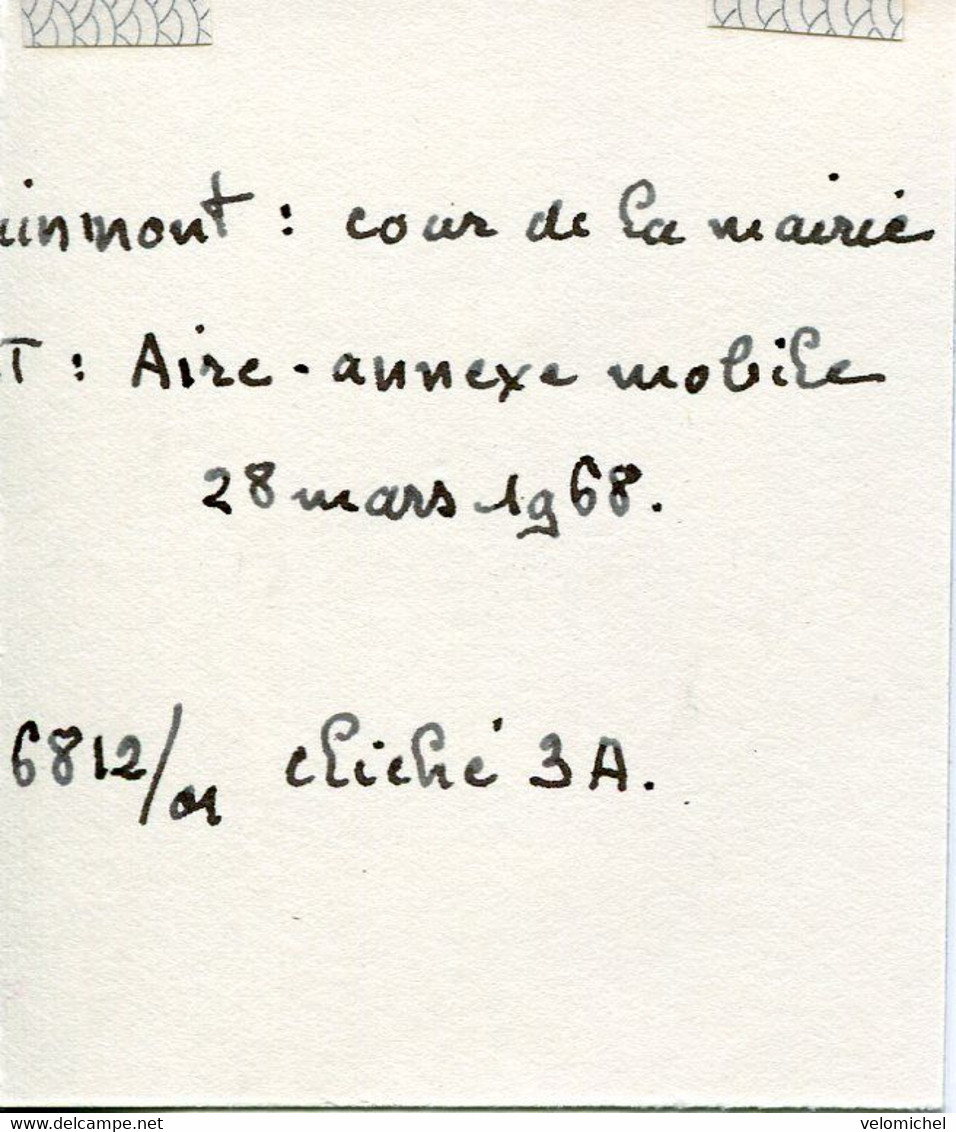 uinmont : cour de la mairie
T : Aire-annexe mobile
28 mars 1968.
6812/01 cliché 3A.
delcampe.net
velomichel